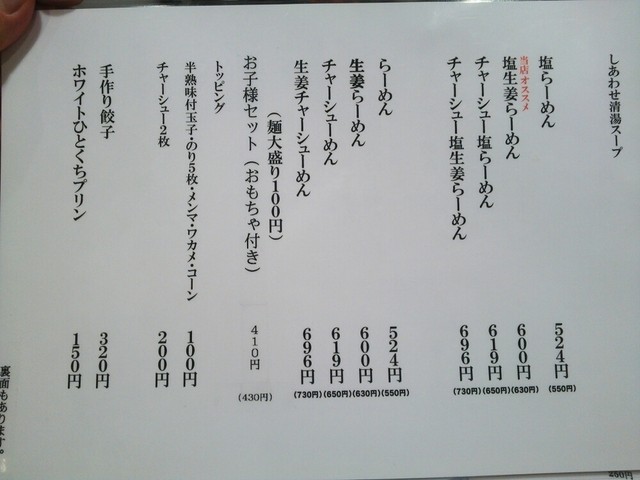 しあわせ清湯スープ
塩らーめん 524円 (550円)
当店オススメ
塩生姜らーめん 600円 (630円)
チャーシュー塩らーめん 619円 (650円)
チャーシュー塩生姜らーめん 696円 (730円)
らーめん 524円 (550円)
生姜らーめん 600円 (630円)
チャーシューめん 619円 (650円)
生姜チャーシューめん 696円 (730円)
(麺大盛り100円)
お子様セット(おもちゃ付き) 410円 (430円)
トッピング
半熟味付玉子・のり5枚・メンマ・ワカメ・コーン 100円
チャーシュー2枚 200円
手作り餃子 320円
ホワイトひとくちプリン 150円
裏面もあります。